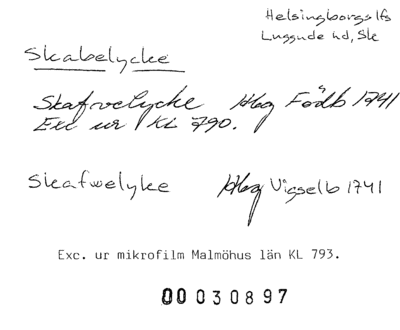 Helsingborgs lfs
Luggude hd, Sk
Skabelycke
Skafvelycke Hbg Födb 1741
Exc ur KL 790.
Skafwelyke Hbg Vigselb 1741
Exc. ur mikrofilm Malmöhus län KL 793.
00030897